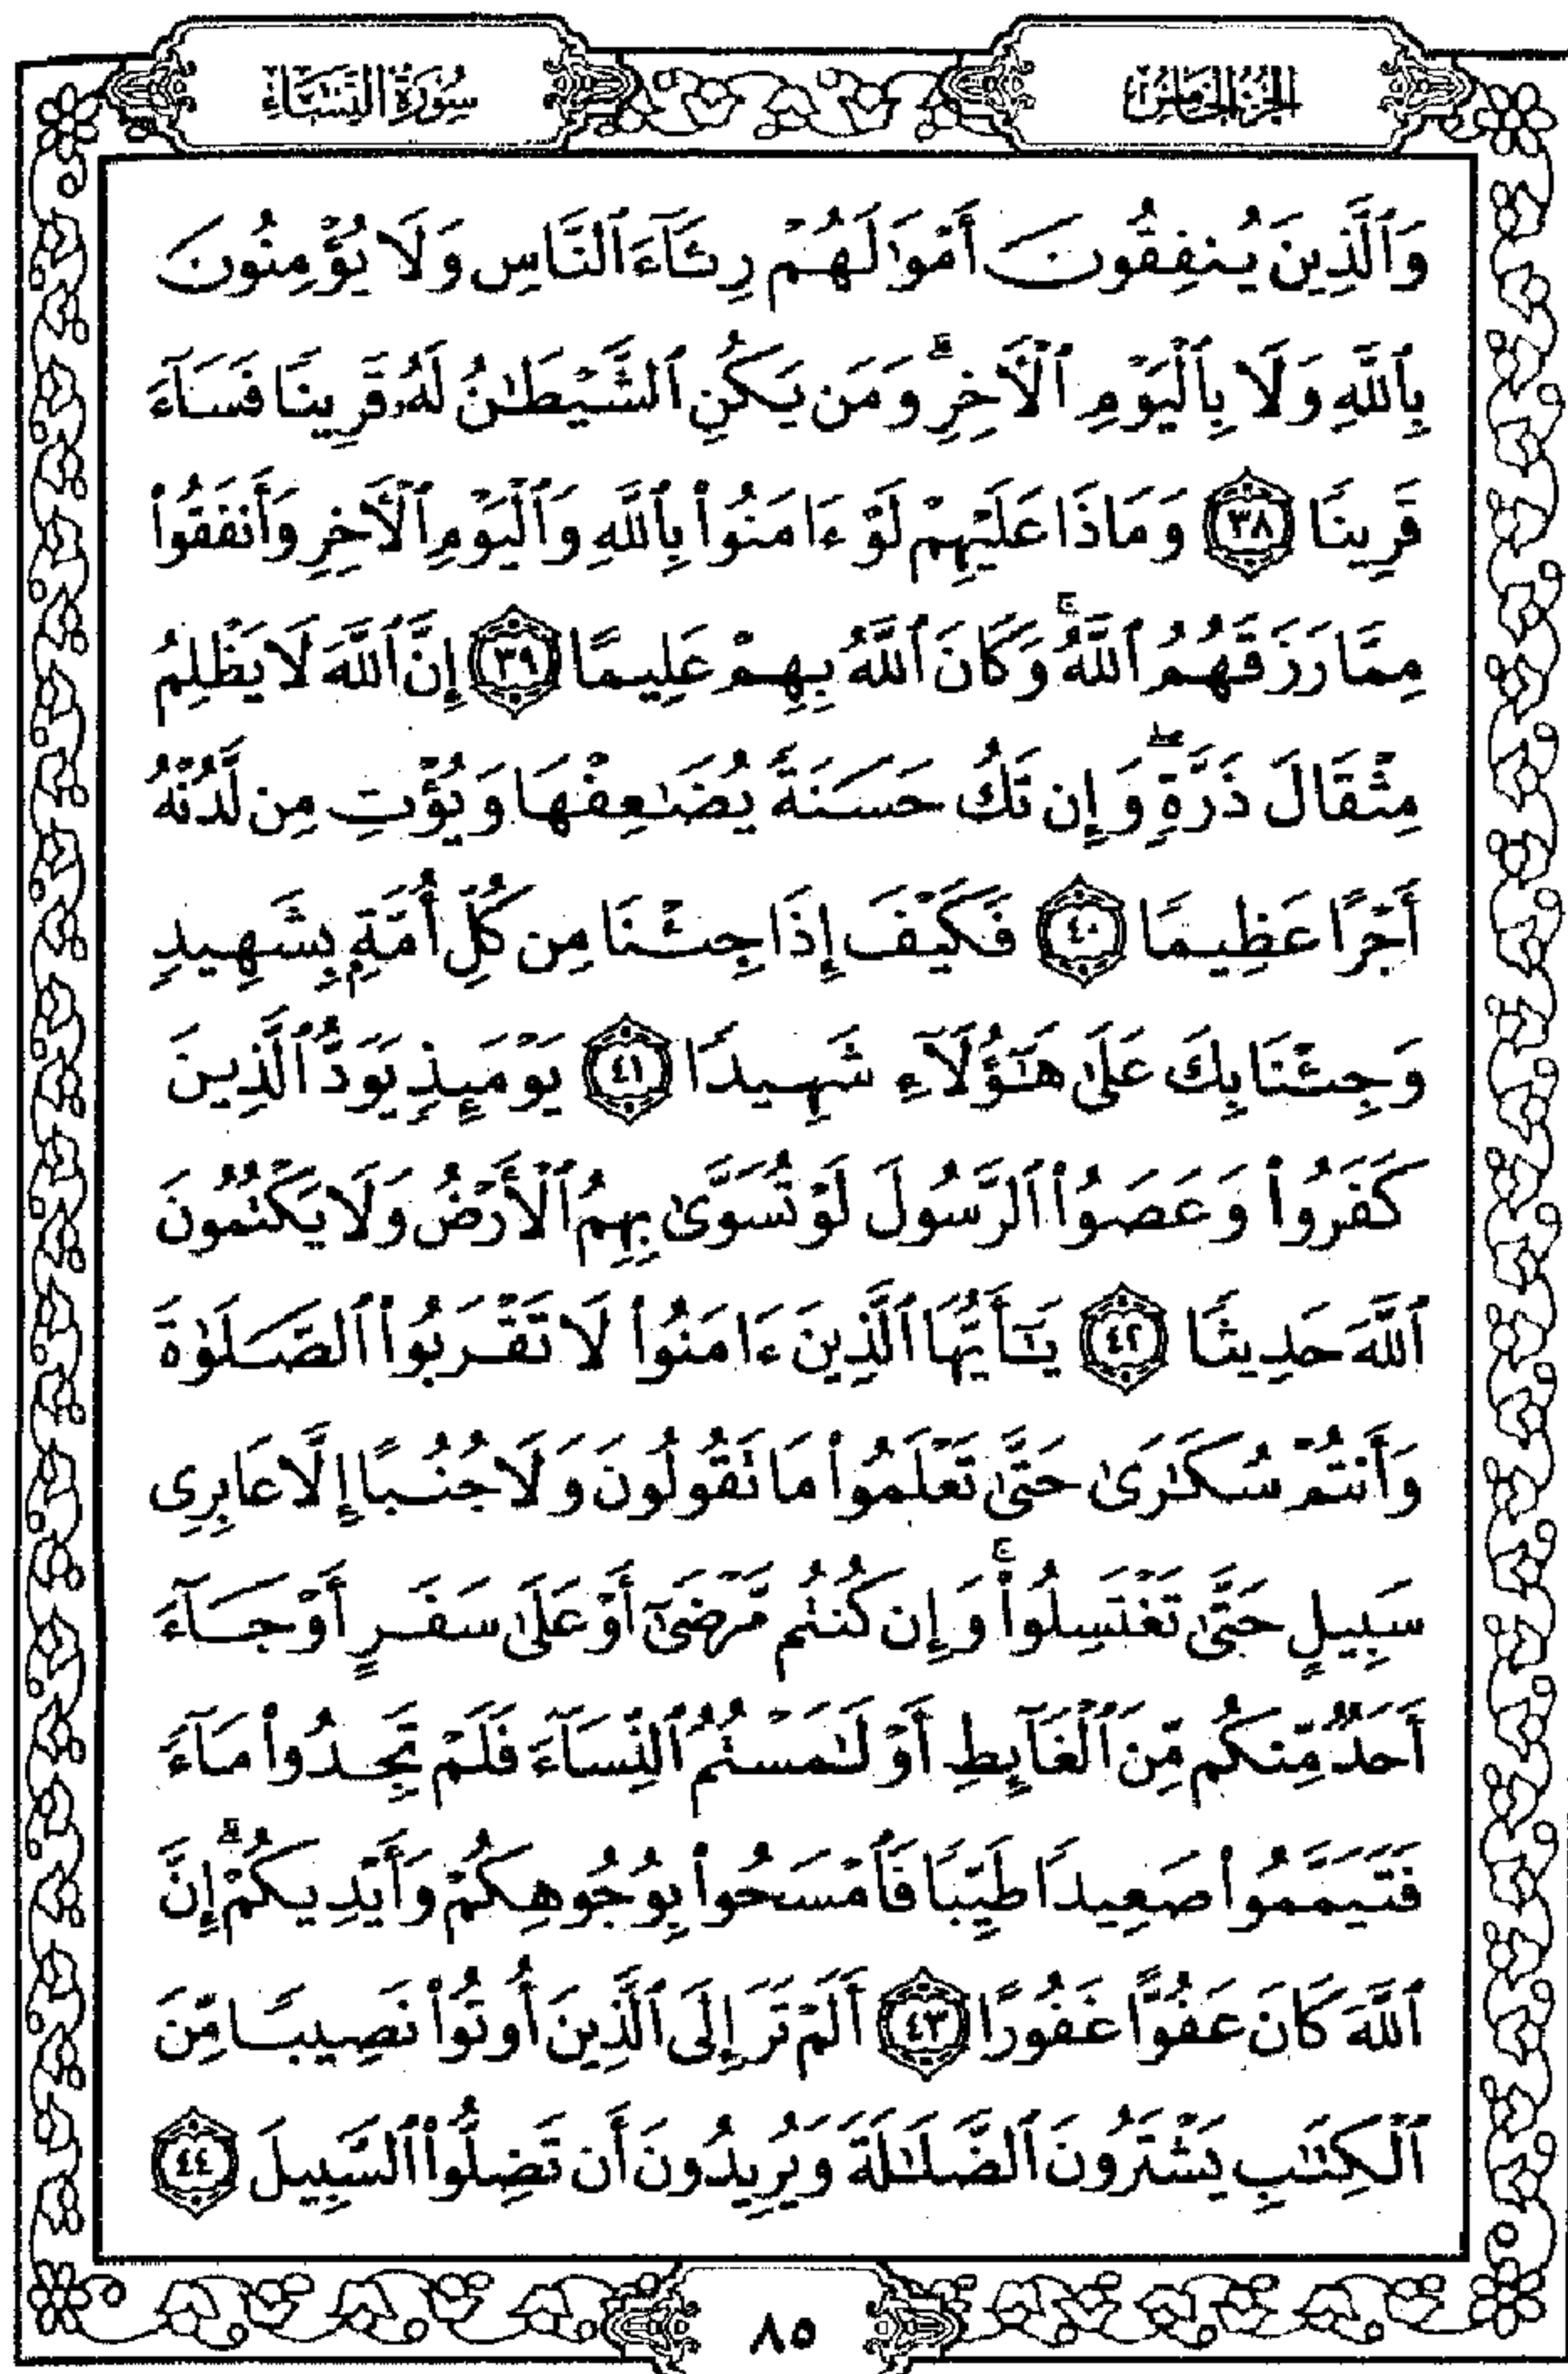 الجزء الخامس
سورة النساء
وَٱلَّذِينَ يُنفِقُونَ أَمْوَٰلَهُمْ رِئَآءَ ٱلنَّاسِ وَلَا يُؤْمِنُونَ
بِٱللَّهِ وَلَا بِٱلْيَوْمِ ٱلْأَخِرِ ۗ وَمَن يَكُنِ ٱلشَّيْطَٰنُ لَهُۥ قَرِينًا فَسَآءَ
قَرِينًا ٣٨ وَمَاذَا عَلَيْهِمْ لَوْ ءَامَنُوا۟ بِٱللَّهِ وَٱلْيَوْمِ ٱلْأَخِرِ وَأَنفَقُوا۟
مِمَّا رَزَقَهُمُ ٱللَّهُ ۚ وَكَانَ ٱللَّهُ بِهِمْ عَلِيمًا ٣٩ إِنَّ ٱللَّهَ لَا يَظْلِمُ
مِثْقَالَ ذَرَّةٍ ۖ وَإِن تَكُ حَسَنَةً يُضَٰعِفْهَا وَيُؤْتِ مِن لَّدُنْهُ
أَجْرًا عَظِيمًا ٤٠ فَكَيْفَ إِذَا جِئْنَا مِن كُلِّ أُمَّةٍۭ بِشَهِيدٍ
وَجِئْنَا بِكَ عَلَىٰ هَٰٓؤُلَآءِ شَهِيدًا ٤١ يَوْمَئِذٍ يَوَدُّ ٱلَّذِينَ
كَفَرُوا۟ وَعَصَوُا۟ ٱلرَّسُولَ لَوْ تُسَوَّىٰ بِهِمُ ٱلْأَرْضُ وَلَا يَكْتُمُونَ
ٱللَّهَ حَدِيثًا ٤٢ يَٰٓأَيُّهَا ٱلَّذِينَ ءَامَنُوا۟ لَا تَقْرَبُوا۟ ٱلصَّلَوٰةَ
وَأَنتُمْ سُكَٰرَىٰ حَتَّىٰ تَعْلَمُوا۟ مَا تَقُولُونَ وَلَا جُنُبًا إِلَّا عَابِرِى
سَبِيلٍ حَتَّىٰ تَغْتَسِلُوا۟ ۚ وَإِن كُنتُم مَّرْضَىٰٓ أَوْ عَلَىٰ سَفَرٍ أَوْ جَآءَ
أَحَدٌ مِّنكُم مِّنَ ٱلْغَآئِطِ أَوْ لَٰمَسْتُمُ ٱلنِّسَآءَ فَلَمْ تَجِدُوا۟ مَآءً
فَتَيَمَّمُوا۟ صَعِيدًا طَيِّبًا فَٱمْسَحُوا۟ بِوُجُوهِكُمْ وَأَيْدِيكُمْ ۗ إِنَّ
ٱللَّهَ كَانَ عَفُوًّا غَفُورًا ٤٣ أَلَمْ تَرَ إِلَى ٱلَّذِينَ أُوتُوا۟ نَصِيبًا مِّنَ
ٱلْكِتَٰبِ يَشْتَرُونَ ٱلضَّلَٰلَةَ وَيُرِيدُونَ أَن تَضِلُّوا۟ ٱلسَّبِيلَ ٤٤
٨٥